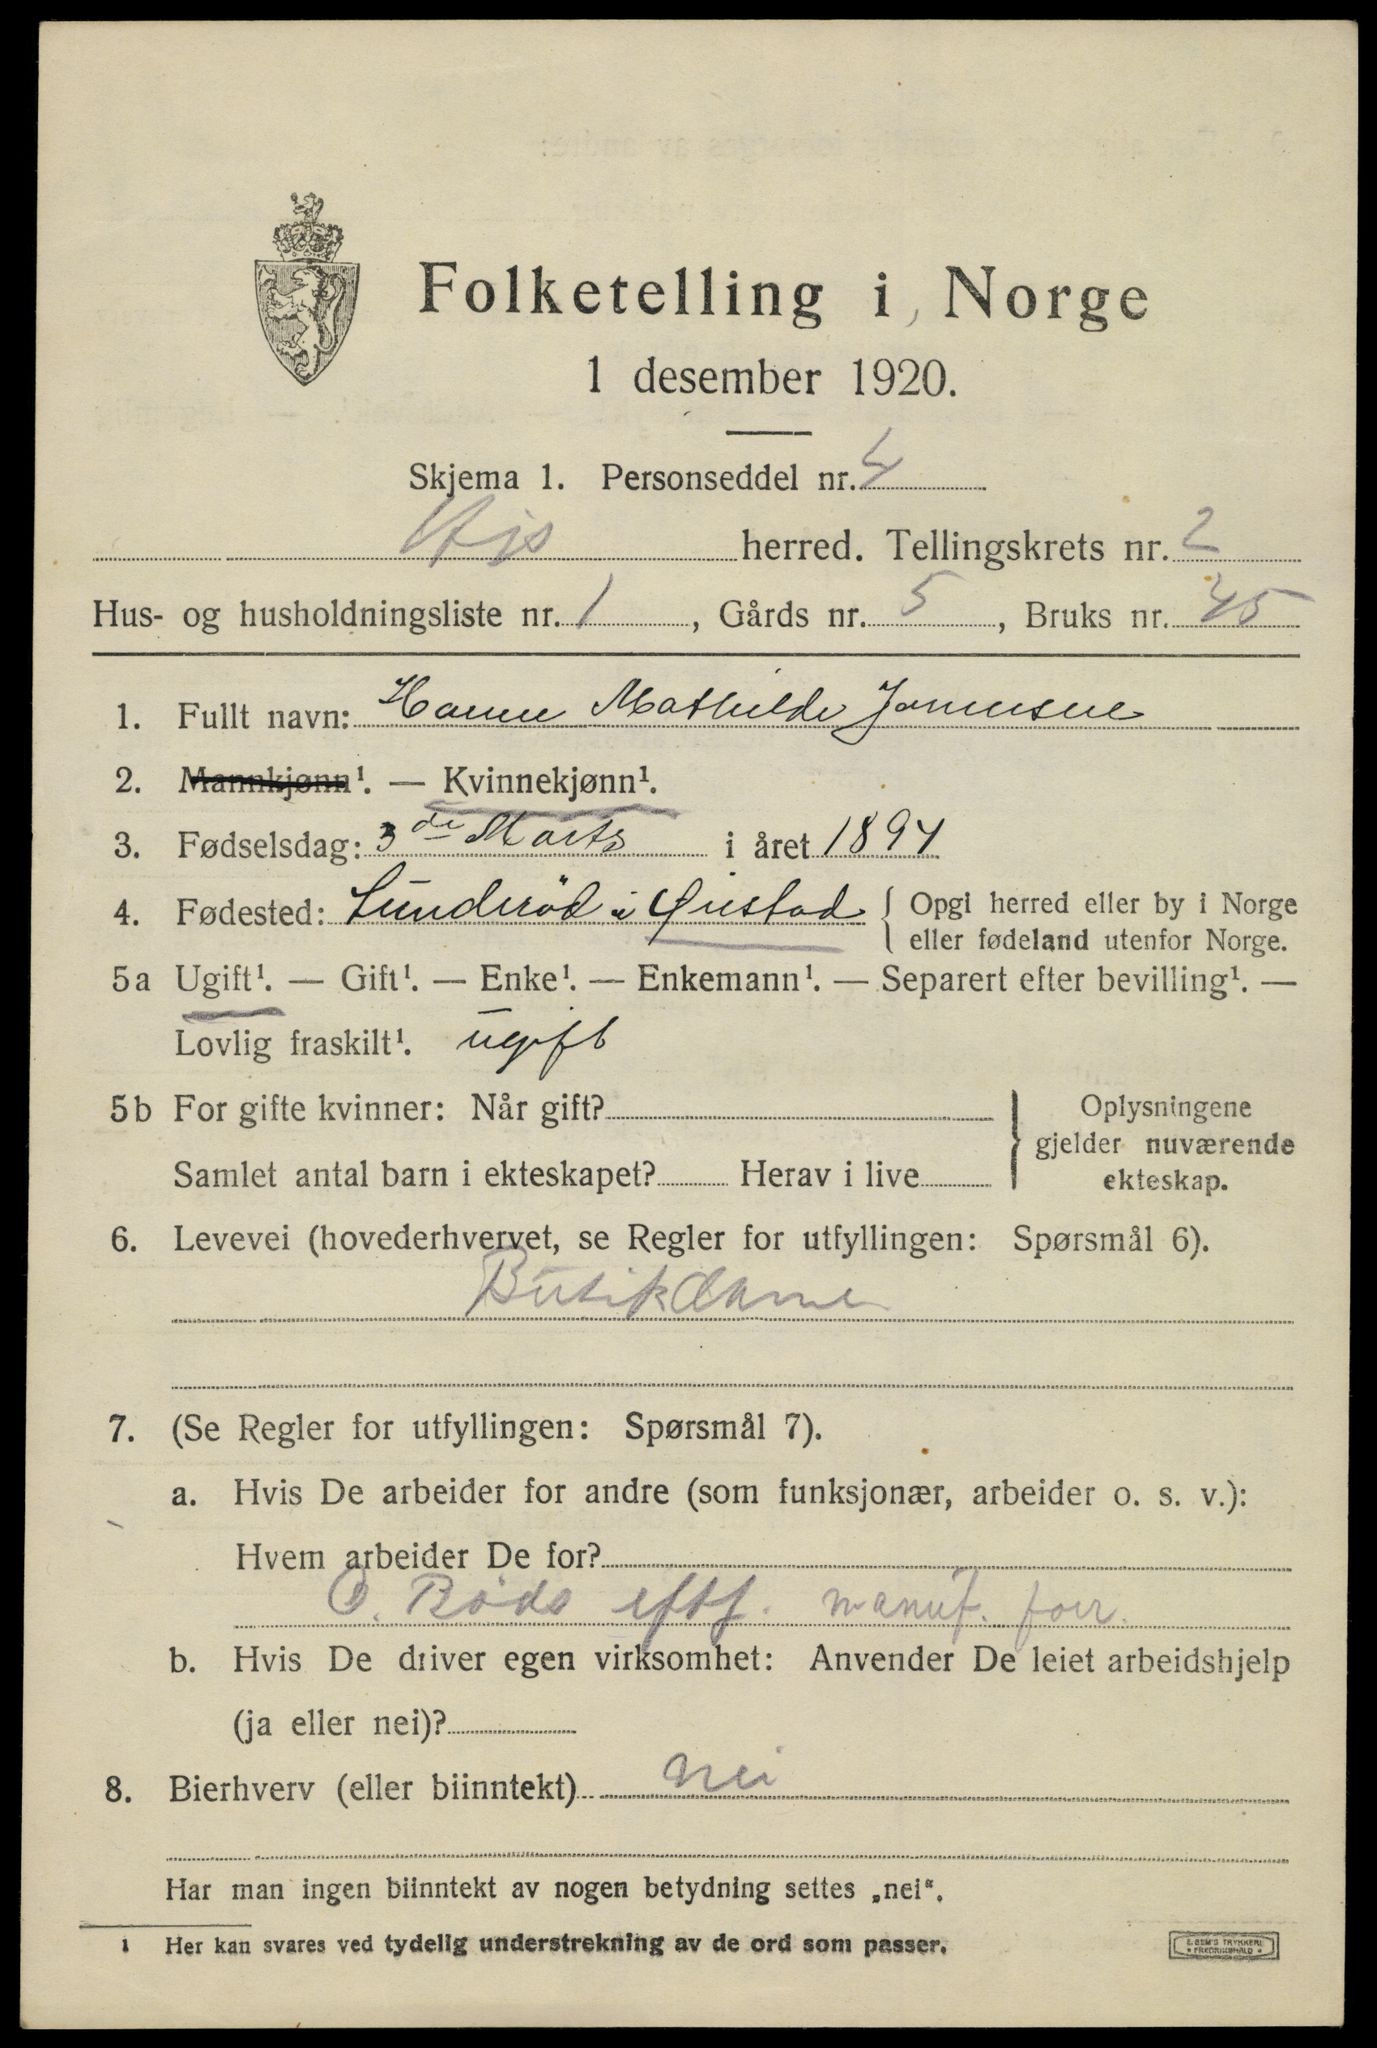 Folketelling i Norge
1 desember 1920.
Skjema 1. Personseddel nr. 4
His herred. Tellingskrets nr. 2
Hus- og husholdningsliste nr. 1, Gårds nr. 5, Bruks nr. 45
1. Fullt navn: Hanne Mathilde Jommesne
2. Mannkjønn¹. — Kvinnekjønn¹.
3. Fødselsdag: 3de Marts i året 1894
4. Fødested: Lunderöd i Øiestad { Opgi herred eller by i Norge
eller fødeland utenfor Norge.
5a Ugift¹. — Gift¹. — Enke¹. — Enkemann¹. — Separert efter bevilling¹. —
Lovlig fraskilt¹. ugift
5b For gifte kvinner: Når gift? } Oplysningene
gjelder nuværende
Samlet antal barn i ekteskapet? Herav i live ekteskap.
6. Levevei (hovederhvervet, se Regler for utfyllingen: Spørsmål 6).
Butikdame
7. (Se Regler for utfyllingen: Spørsmål 7).
a. Hvis De arbeider for andre (som funksjonær, arbeider o. s. v.):
Hvem arbeider De for?
O. Röds eftf. manuf. forr.
b. Hvis De driver egen virksomhet: Anvender De leiet arbeidshjelp
(ja eller nei)?
8. Bierhverv (eller biinntekt) nei
Har man ingen biinntekt av nogen betydning settes „nei“.
1 Her kan svares ved tydelig understrekning av de ord som passer.
E. SEM'S TRYKKERI
FREDRIKSHALD